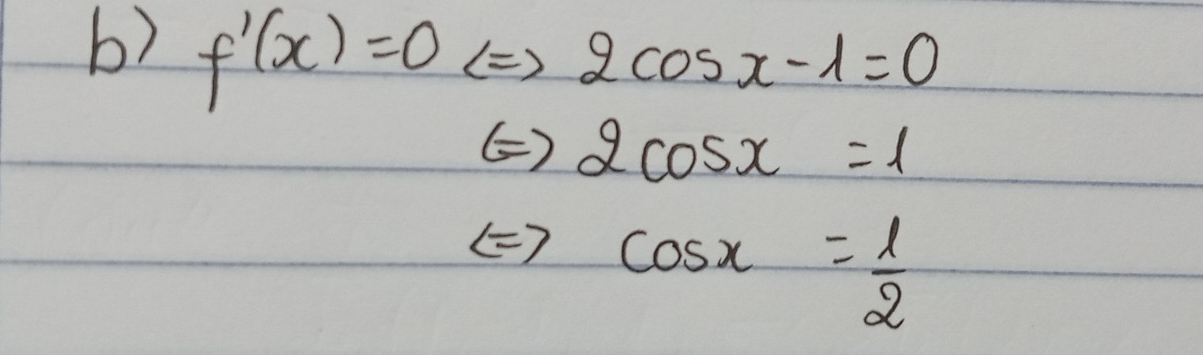 b) f'(x) = 0 <=> 2cosx - 1 = 0
<=> 2cosx = 1
<=> cosx = 1/2